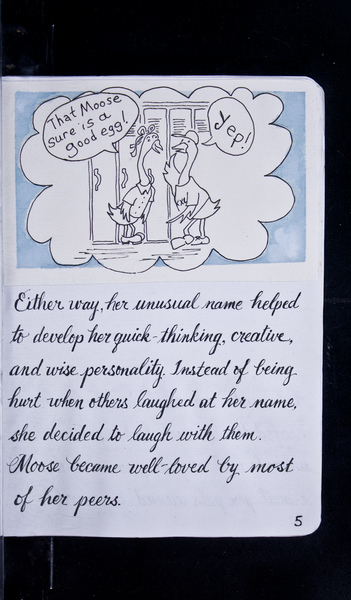 That Moose
sure is a
good egg!
Yep!
Either way, her unusual name helped
to develop her quick-thinking, creative,
and wise personality. Instead of being
hurt when others laughed at her name,
she decided to laugh with them.
Moose became well-loved by most
of her peers.
5